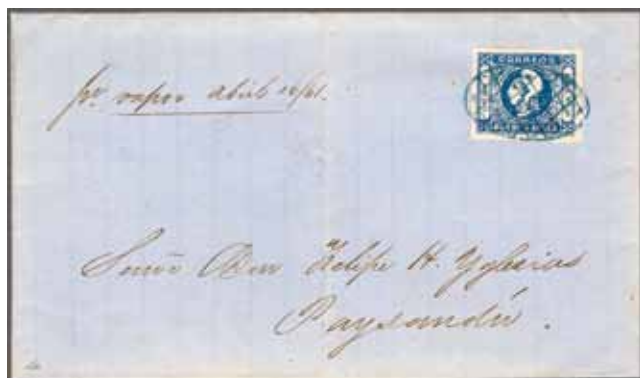 pr. vapor abril 16/61.
CORREOS
Señor Don Felipe H. Yglesias
Paysandú.